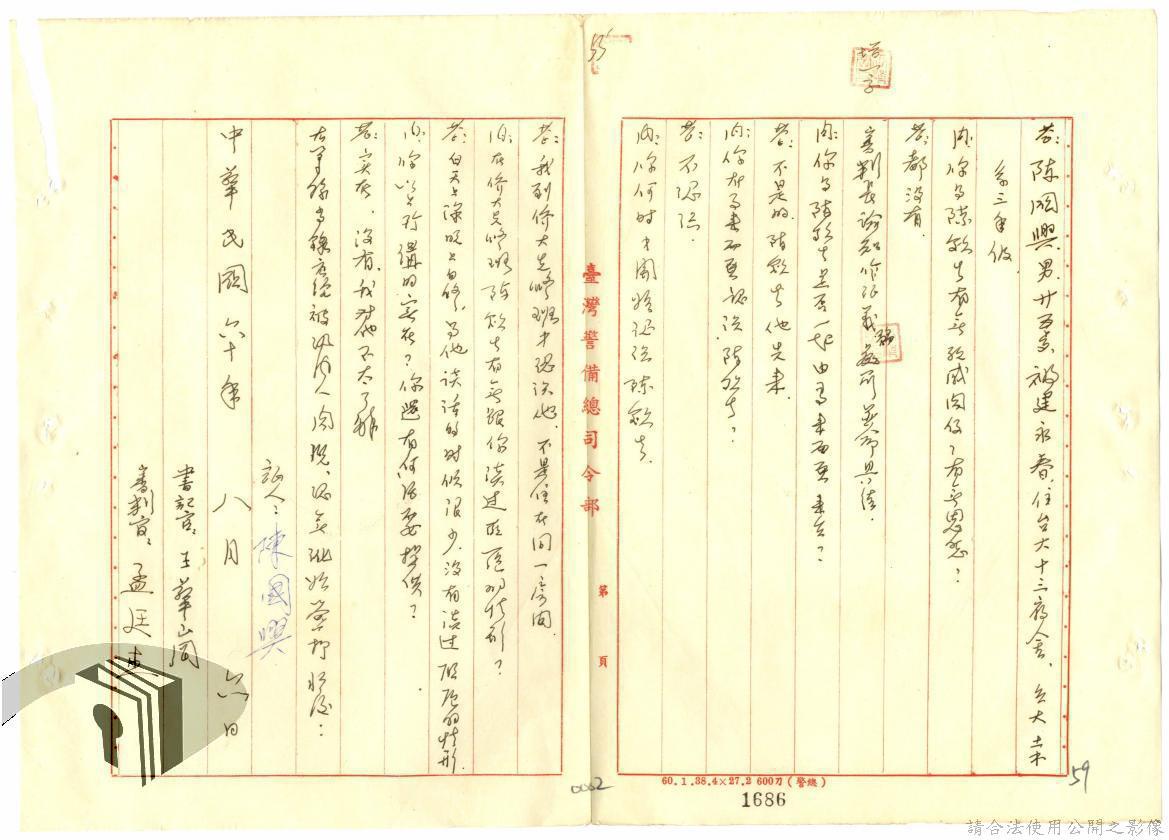 增一字
答:陳國興男廿五歲福建永春,住台大十三宿舍,台大土木
系三年級。
問:你與陳欽生有無親戚關係?有無恩怨?
答:都沒有。
審判長諭知作證義務並命具結。
問:你與陳欽生是否一起由馬來西亞來台?
答:不是的,陳欽生他先來。
問:你在馬來西亞認識陳欽生?
答:不認識。
問:你何時才開始認識陳欽生。
臺灣警備總司令部
第 頁
答:我到僑大先修班才認識他,不是住在同一房間。
問:在僑大先修班陳欽生有無跟你談過
答:白天上課晚上自修,與他談話的時候很少,沒有談過
問:你以上所講的實在?你還有何話要提供?
答:實在,沒有,我對他不太了解
右筆錄當庭
証人:陳國興
中華民國六十年八月六日
書記官:王
審判官:孟廷杰
60.1.38.4×27.2 600刀(警總)
1686
59
0002
請合法使用公開之影像